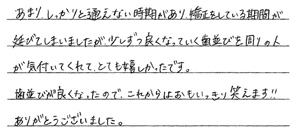 あまり、しっかりと通えない時期があり、矯正をしている期間が
延びてしまいましたが少しずつ良くなっていく歯並びを周りの人
が気付いてくれて、とても嬉しかったです。
歯並びが良くなったので、これからはおもいっきり笑えます!!
ありがとうございました。